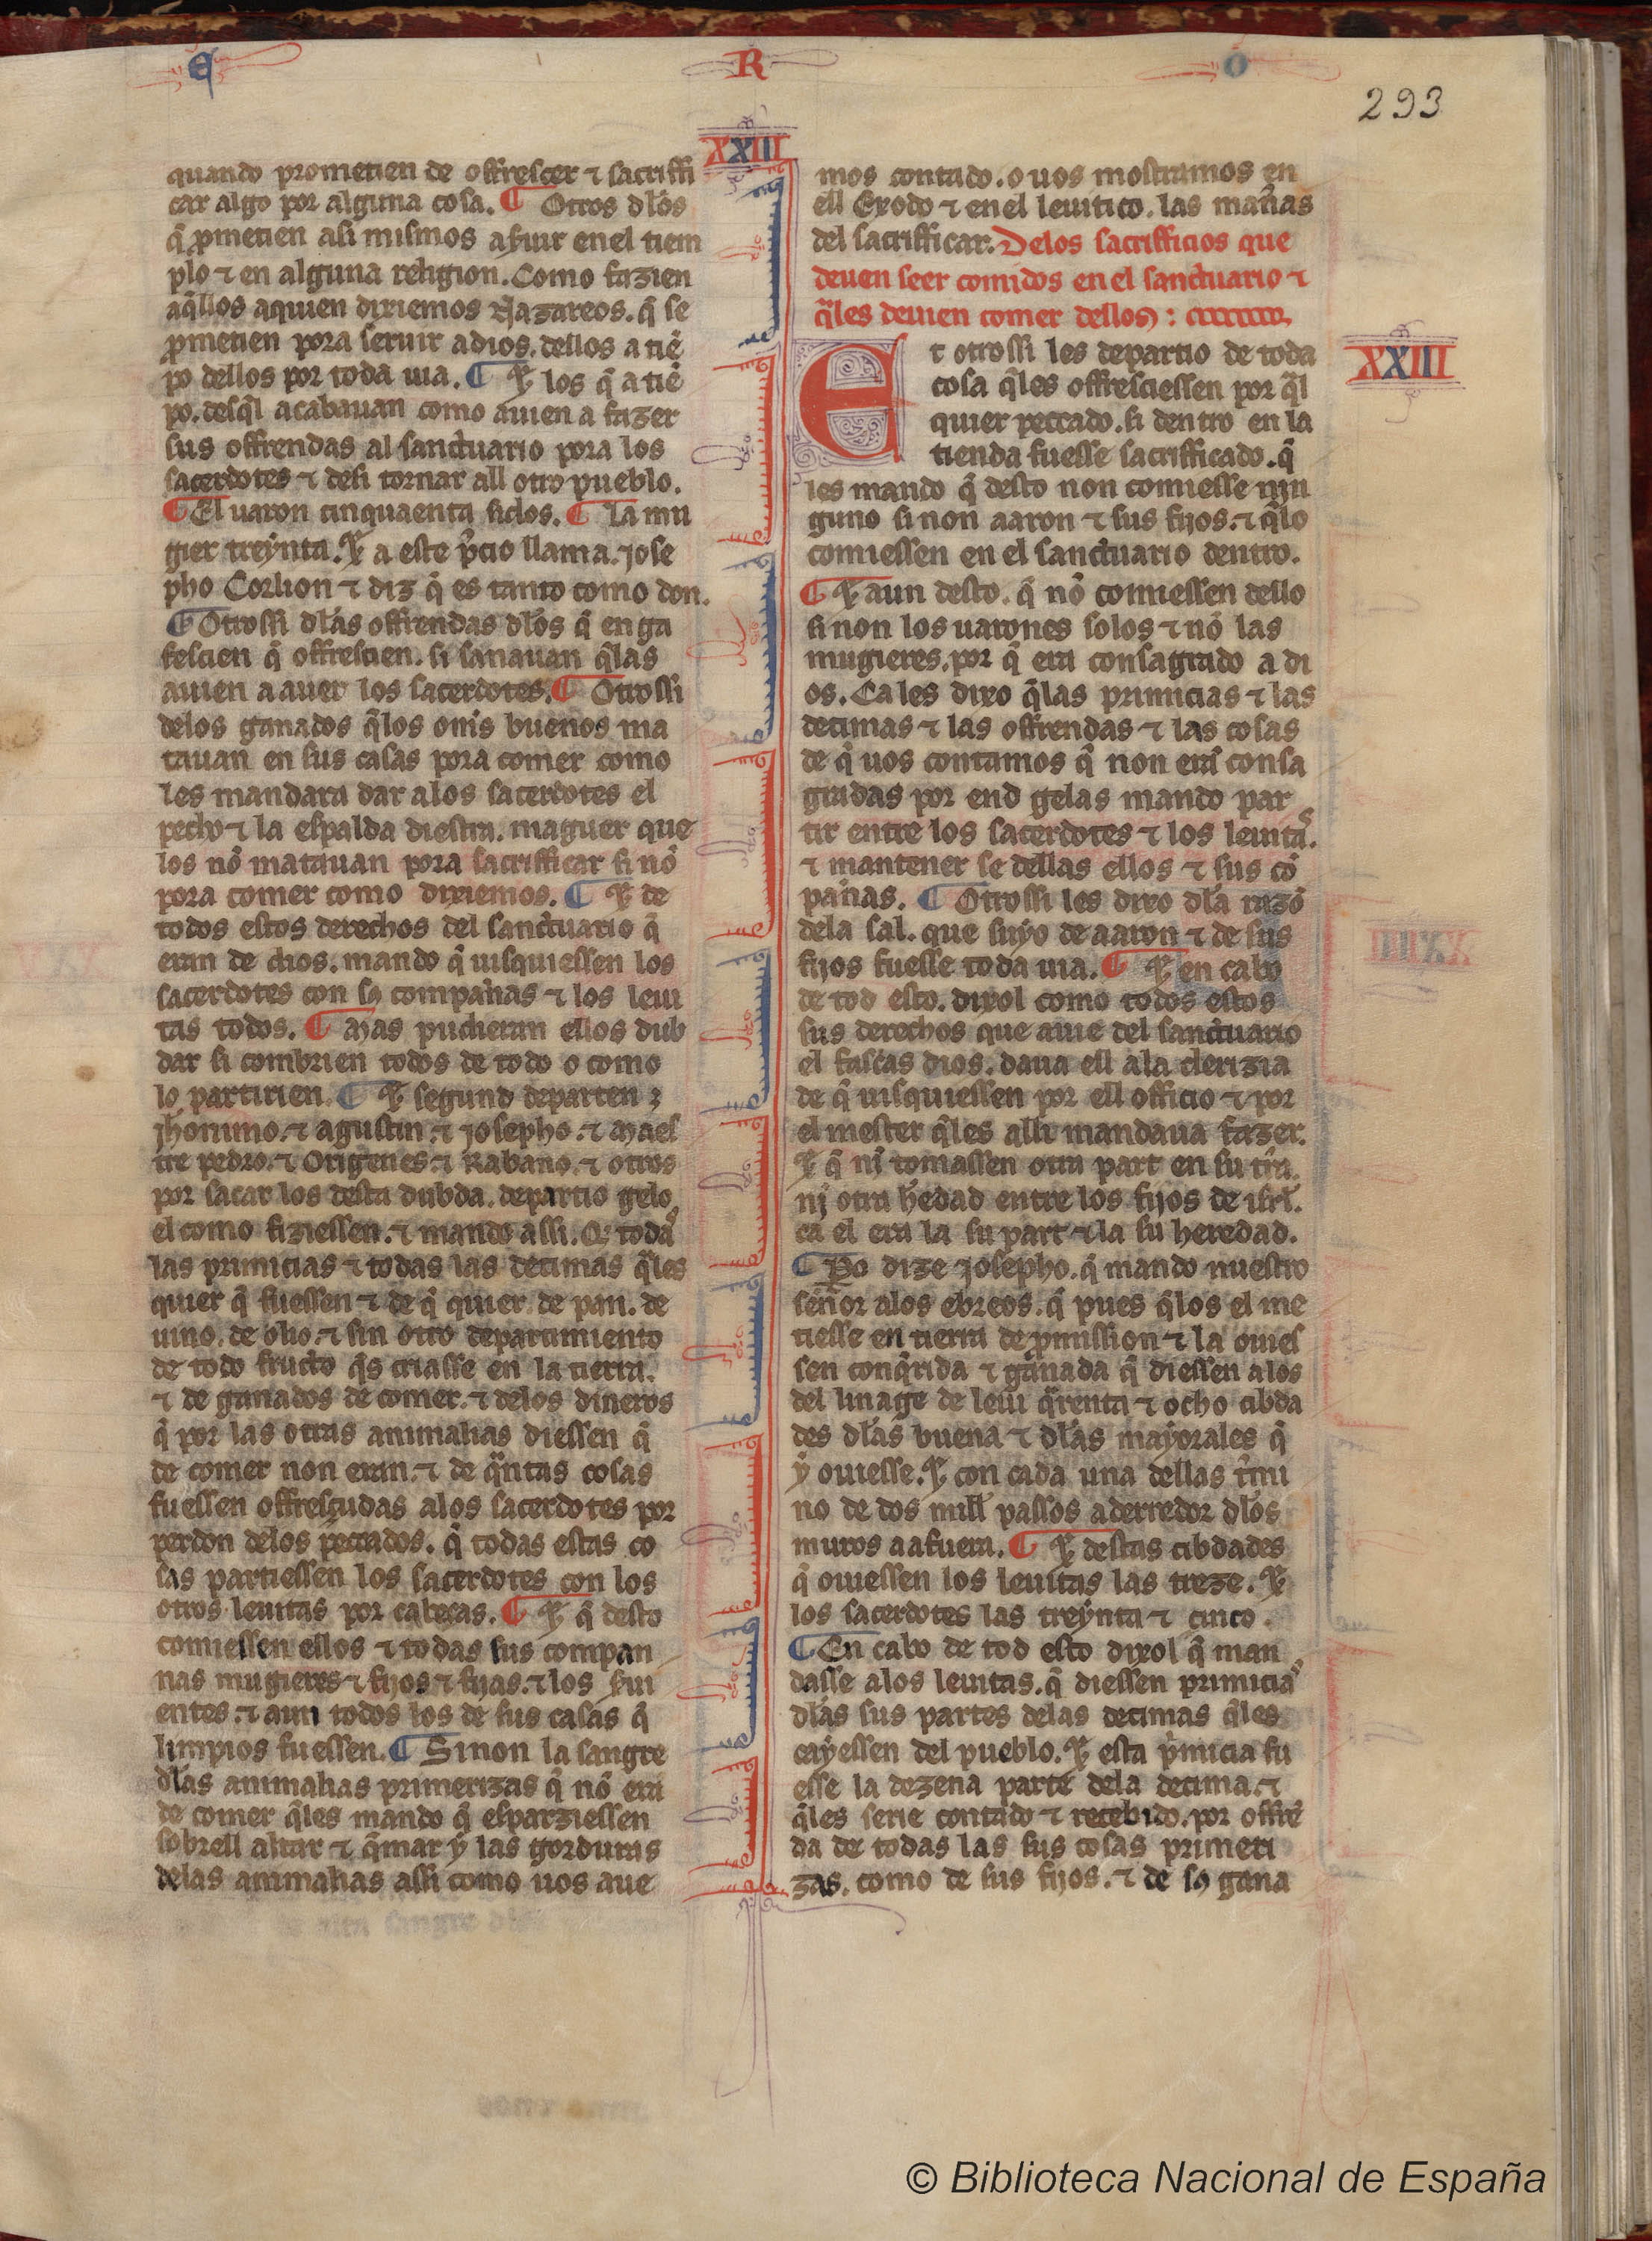 E R O
293
XXIII
quando prometien de offrescer ⁊ sacriffi
car algo por alguna cosa. ¶ Otros dlos
q̃ ꝓmetien asi mismos aseruir enel tiem
plo ⁊ en alguna religion. Como fazien
aq̃llos aquien dixiemos Nazareos. q̃ se
ꝓmetien pora seruir adios. dellos a tiẽ
po dellos por toda uia. ¶ ⁊ los q̃ a tiẽ
po. desq̃l acabauan como auien a fazer
sus offrendas al sanctuario pora los
sacerdotes ⁊ desi tornar all otro pueblo.
¶ El uaron cinquaenta siclos. ¶ La mu
gier treynta. ⁊ a este p̃cio llama. jose
pho Corlion ⁊ diz q̃ es tanto como don.
¶ Otrossi dlas offrendas dlos q̃ en ga
fescien q̃ offrescien. si sanauan q̃las
auien a auer los sacerdotes. ¶ Otrossi
delos ganados q̃los om̃s buenos ma
tauan en sus casas pora comer como
les mandara dar alos sacerdotes el
pecho ⁊ la espalda diestra. maguer que
los nõ matauan pora sacrifficar si nõ
pora comer como dixiemos. ¶ ⁊ de
todos estos derechos del sanctuario q̃
eran de dios. mando q̃ uisquiessen los
sacerdotes con sꝯ compan̄as ⁊ los leui
tas todos. ¶ Mas pudieran ellos dub
dar si combrien todos de todo o como
lo partirien. ¶ ⁊ segund departen
jheronimo. ⁊ agustin. ⁊ josepho. ⁊ Maes
tre pedro. ⁊ Origenes ⁊ Rabano. ⁊ otros
por sacar los desta dubda. departio gelo
el como fiziessen. ⁊ mando assi. Q̃ todas
las primicias ⁊ todas las decimas q̃les
quier q̃ fuessen ⁊ de q̃ quier de pan. de
uino. de olio. ⁊ sin otro departimiento
de todo fructo q̃s criasse en la tierra.
⁊ de ganados de comer. ⁊ delos dineros
q̃ por las otras animalias diessen q̃
de comer non eran. ⁊ de q̃ntas cosas
fuessen offresçudas alos sacerdotes por
perdon delos peccados. q̃ todas estas co
sas partiessen los sacerdotes con los
otros leuitas por cabeças. ¶ ⁊ q̃ desto
comiessen ellos ⁊ todas sus compan
nas mugieres ⁊ fijos ⁊ fijas. ⁊ los serui
entes. ⁊ aun todos los de sus casas q̃
limpios fuessen. ¶ Sinon la sangre
dlas animalias primerizas q̃ nõ erã
de comer q̃les mando q̃ esparziessen
sobrell altar ⁊ q̃mar y las gorduras
delas animalias assi como uos aue
mos contado. o uos mostramos en
ell Exodo ⁊ enel leuitico. las man̄as
del sacrifficar. Delos sacrifficios que
deuen seer comidos en el sanctuario ⁊
q̃les deuen comer dellos:
XXIII
Et otrossi les departio de toda
cosa q̃les offresciessen por q̃l
quier peccado. si dentro en la
tienda fuesse sacrifficado. q̃
les mando q̃ desto non comiesse nin
guno si non aaron ⁊ sus fijos. ⁊ q̃lo
comiessen en el sanctuario dentro.
¶ ⁊ aun desto. q̃ nõ comiessen dello
si non los uarones solos ⁊ nõ las
mugieres. por q̃ era consagrado a di
os. Ca les dixo q̃las primicias ⁊ las
decimas ⁊ las offrendas ⁊ las cosas
de q̃ uos contamos q̃ non erã consa
gradas por end gelas mando par
tir entre los sacerdotes ⁊ los leuitas.
⁊ mantener se dellas ellos ⁊ sus cõ
pan̄as. ¶ Otrossi les dixo dla razõ
dela sal. que suyo de aaron ⁊ de sus
fijos fuesse toda uia. ¶ ⁊ en cabo
de tod esto. dixol como todos estos
sus derechos que auie del sanctuario
el fascas dios. daua ell ala clerizia
de q̃ uisquiessen por ell officio ⁊ por
el mester q̃les alli mandaua fazer.
⁊ q̃ nj̃ tomassen otra part en su tr̃a.
nj̃ otra h̃edad entre los fijos de isrl̃.
ca el era la su part ⁊ la su heredad.
¶ Do dize josepho. q̃ mando nuestro
sen̄or alos ebreos. q̃ pues q̃los el me
tiesse en tierra de ꝓmission ⁊ la ouies
sen conq̃rida ⁊ ganada q̃ diessen alos
del linage de leui q̃renta ⁊ ocho cibda
des dlas buena ⁊ dlas mayorales q̃
y ouiesse. ⁊ con cada una dellas t̃mi
no de dos mill passos aderredor dlos
muros a afuera. ¶ ⁊ destas cibdades
q̃ ouiessen los leuitas las treze. ⁊
los sacerdotes las treynta ⁊ cinco.
¶ En cabo de tod esto dixol q̃ man
dasse alos leuitas. q̃ diessen primicias
dlas sus partes delas decimas q̃les
cayessen del pueblo. ⁊ esta p̃micia fu
esse la dezena parte dela decima. ⁊
q̃les serie contado ⁊ recebido. por offrẽ
da de todas las sus cosas primeri
zas. como de sus fijos. ⁊ de sꝯ gana
© Biblioteca Nacional de España